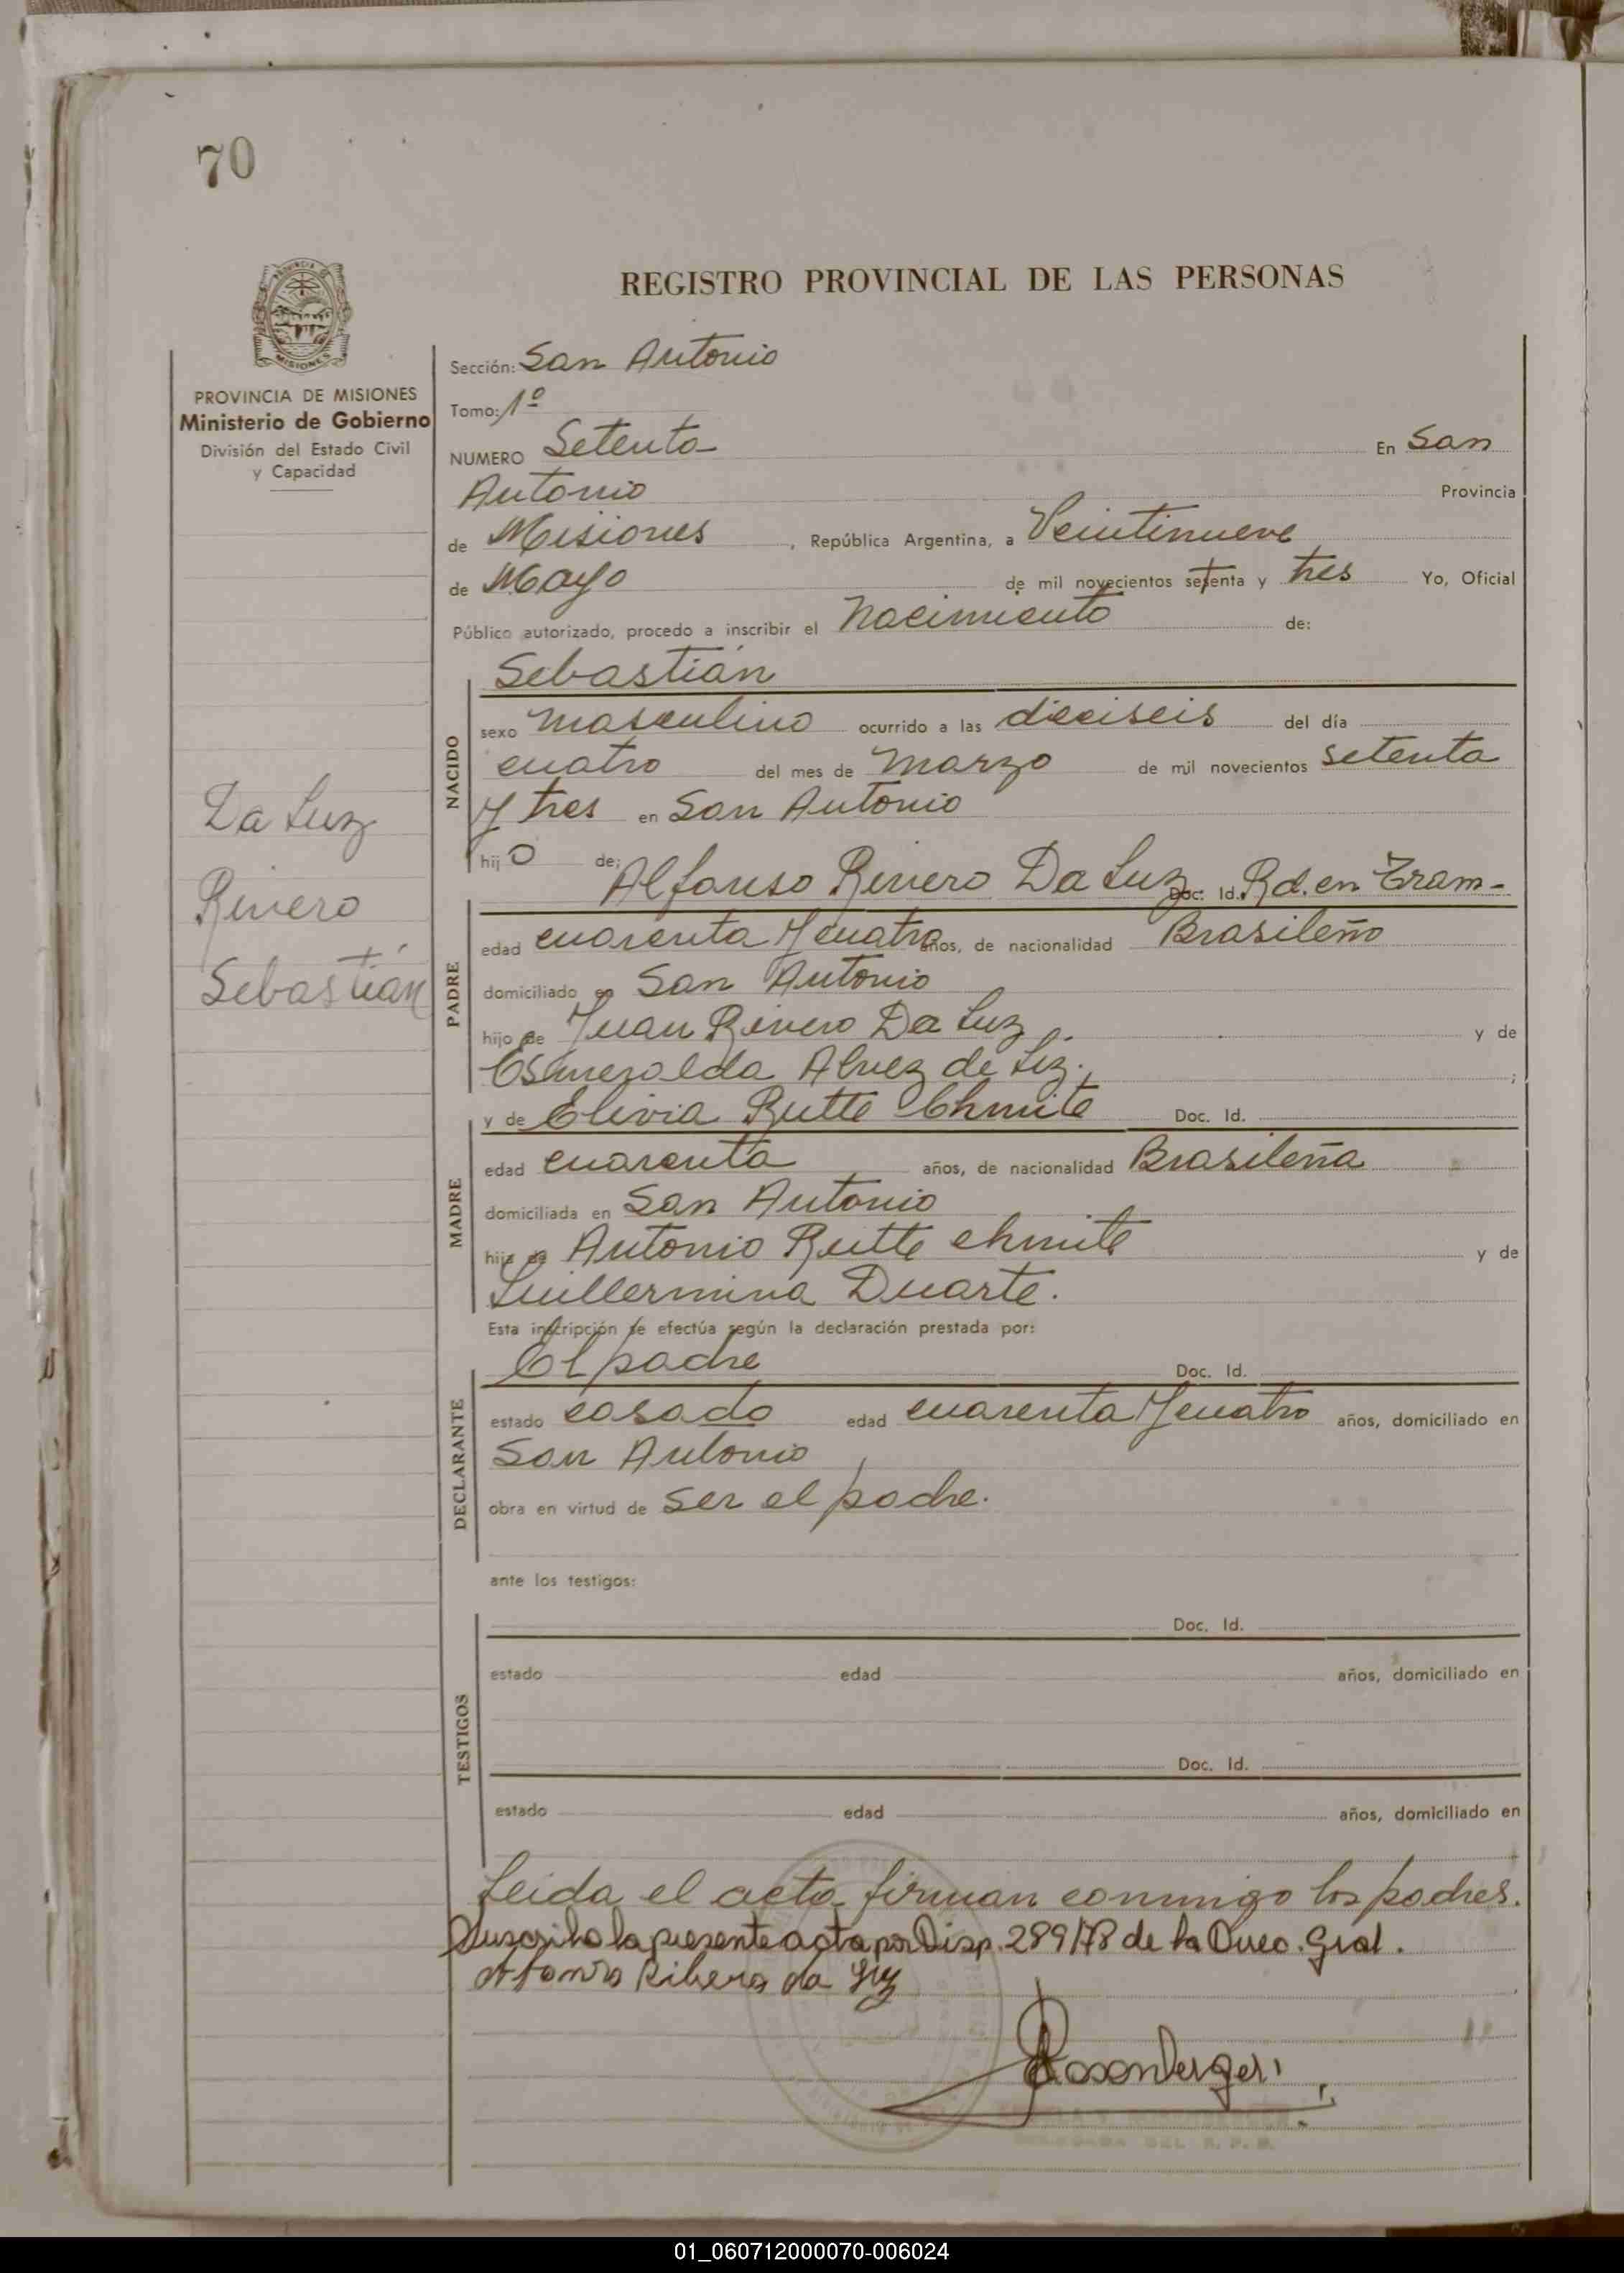 70
REGISTRO PROVINCIAL DE LAS PERSONAS
MISIONES
PROVINCIA DE MISIONES
Ministerio de Gobierno
División del Estado Civil
y Capacidad
Da Luz
Rivero
Sebastián
Sección: San Antonio
Tomo: 1º
NUMERO Setenta En San
Antonio Provincia
de Misiones, República Argentina, a Veintinueve
de Mayo de mil novecientos setenta y tres Yo, Oficial
Público autorizado, procedo a inscribir el Nacimiento de:
Sebastián
NACIDO
sexo masculino ocurrido a las dieciseis del día
cuatro del mes de Marzo de mil novecientos setenta
y tres en San Antonio
hijo de: Alfonso Rivero Da Luz Doc. Id. Rd. en Tram-
PADRE
edad cuarenta y cuatro años, de nacionalidad Brasileño
domiciliado en San Antonio
hijo de Juan Rivero Da Luz y de
Esmeralda Alvez de Liz.;
MADRE
y de Elivia Rutte Chmite Doc. Id.
edad cuarenta años, de nacionalidad Brasileña
domiciliada en San Antonio
hija de Antonio Rutte chmite y de
Guillermina Duarte.
Esta inscripción se efectúa según la declaración prestada por:
El padre Doc. Id.
DECLARANTE
estado casado edad cuarenta y cuatro años, domiciliado en
San Antonio
obra en virtud de ser el padre.
ante los testigos:
TESTIGOS
Doc. Id.
estado edad años, domiciliado en
Doc. Id.
estado edad años, domiciliado en
Leida el acta firman conmigo los padres.
Suscribo la presente acta por Disp. 289/78 de la Direc. Gral.
Ribera da Luz
Rosenberger
01_060712000070-006024